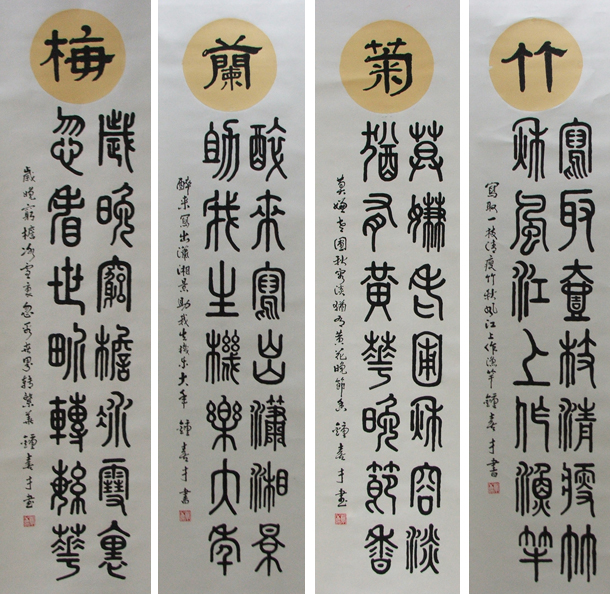 梅
歲晚窮檐冰雪裏
忽看世界轉繁華
歲晚窮檐冰雪裏忽看世界轉繁華 鐘喜才書
蘭
醉來寫出瀟湘景
助我生機樂大年
醉來寫出瀟湘景助我生機樂大年 鐘喜才書
菊
莫嫌老圃秋容淡
猶有黃華晚節香
莫嫌老圃秋容淡猶有黃花晚節香 鐘喜才書
竹
寫取壹枝清瘦竹
秋風江上作漁竿
寫取一枝清瘦竹秋風江上作漁竿 鐘喜才書